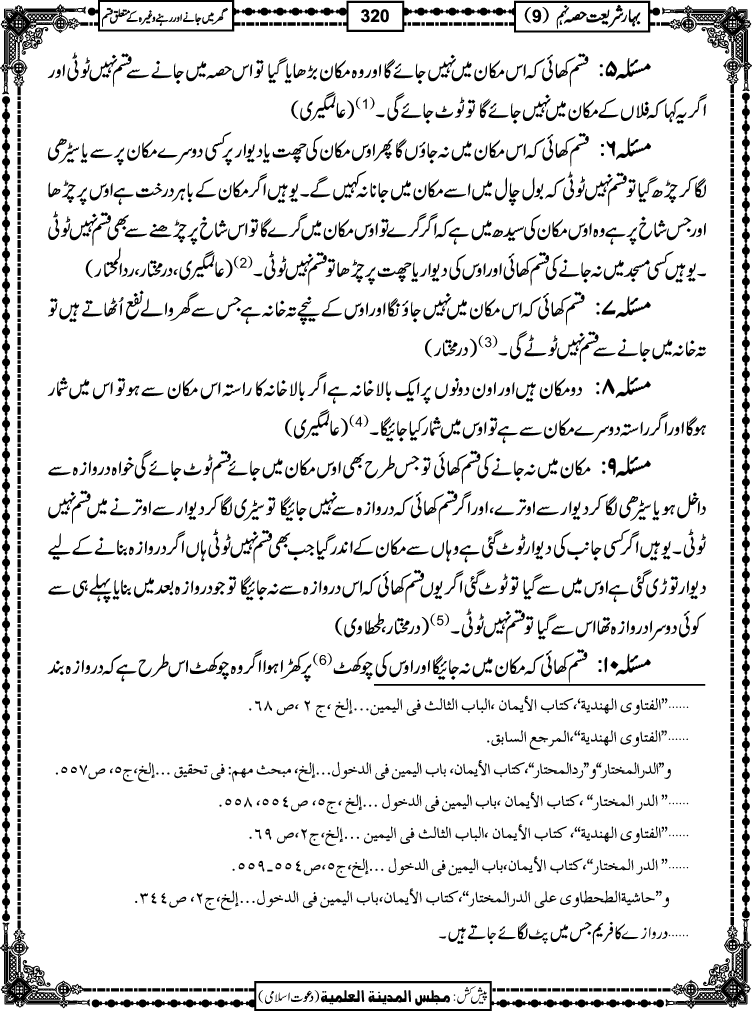 بہار شریعت حصہ نہم (9)
320
گھر میں جانے اور رہنے وغیرہ کے متعلق قسم
مسئلہ ۵: قسم کھائی کہ اس مکان میں نہیں جائے گا اور وہ مکان بڑھایا گیا تو اس حصہ میں جانے سے قسم نہیں ٹوٹی اور
اگر یہ کہا کہ فلاں کے مکان میں نہیں جائے گا تو ٹوٹ جائے گی۔(1) (عالمگیری)
مسئلہ ۶: قسم کھائی کہ اس مکان میں نہ جاؤں گا پھر اوس مکان کی چھت یا دیوار پر کسی دوسرے مکان پر سے یا سیڑھی
لگا کر چڑھ گیا تو قسم نہیں ٹوٹی کہ بول چال میں اسے مکان میں جانا نہ کہیں گے۔ یوہیں اگر مکان کے باہر درخت ہے اوس پر چڑھا
اور جس شاخ پر ہے وہ اوس مکان کی سیدھ میں ہے کہ اگر گرے تو اوس مکان میں گرے گا تو اس شاخ پر چڑھنے سے بھی قسم نہیں ٹوٹی
۔ یوہیں کسی مسجد میں نہ جانے کی قسم کھائی اور اوس کی دیوار یا چھت پر چڑھا تو قسم نہیں ٹوٹی۔(2) (عالمگیری، درمختار، ردالمحتار)
مسئلہ ۷: قسم کھائی کہ اس مکان میں نہیں جاؤنگا اور اوس کے نیچے تہ خانہ ہے جس سے گھر والے نفع اُٹھاتے ہیں تو
تہ خانہ میں جانے سے قسم نہیں ٹوٹے گی۔(3) (درمختار)
مسئلہ ۸: دو مکان ہیں اور اون دونوں پر ایک بالا خانہ ہے اگر بالا خانہ کا راستہ اس مکان سے ہو تو اس میں شمار
ہوگا اور اگر راستہ دوسرے مکان سے ہے تو اوس میں شمار کیا جائیگا۔(4) (عالمگیری)
مسئلہ ۹: مکان میں نہ جانے کی قسم کھائی تو جس طرح بھی اوس مکان میں جائے قسم ٹوٹ جائے گی خواہ دروازہ سے
داخل ہو یا سیڑھی لگا کر دیوار سے اوترے، اور اگر قسم کھائی کہ دروازہ سے نہیں جائیگا تو سیڑی لگا کر دیوار سے اوترنے میں قسم نہیں
ٹوٹی۔ یوہیں اگر کسی جانب کی دیوار ٹوٹ گئی ہے وہاں سے مکان کے اندر گیا جب بھی قسم نہیں ٹوٹی ہاں اگر دروازہ بنانے کے لیے
دیوار توڑی گئی ہے اوس میں سے گیا تو ٹوٹ گئی اگر یوں قسم کھائی کہ اس دروازہ سے نہ جائیگا تو جو دروازہ بعد میں بنایا پہلے ہی سے
کوئی دوسرا دروازہ تھا اس سے گیا تو قسم نہیں ٹوٹی۔(5) (درمختار، طحطاوی)
مسئلہ ۱۰: قسم کھائی کہ مکان میں نہ جائیگا اور اوس کی چوکھٹ(6) پر کھڑا ہوا اگر وہ چوکھٹ اس طرح ہے کہ دروازہ بند
......”الفتاوى الهندية“، كتاب الأيمان ،الباب الثالث فى اليمين...إلخ ،ج ٢ ،ص ٦٨.
......”الفتاوى الهندية“،المرجع السابق.
و”الدرالمختار“و”ردالمحتار“،كتاب الأيمان، باب اليمين فى الدخول...إلخ، مبحث مهم: فى تحقيق ...إلخ،ج٥، ص٥٥٧.
......” الدر المختار“ ،كتاب الأيمان ،باب اليمين فى الدخول ...إلخ ،ج٥، ص٥٥٤، ٥٥٨.
......”الفتاوى الهندية“، كتاب الأيمان ،الباب الثالث فى اليمين ...إلخ،ج٢،ص ٦٩.
......” الدر المختار“،كتاب الأيمان،باب اليمين فى الدخول ...إلخ،ج٥،ص٥٥٤ـ٥٥٩.
و”حاشيةالطحطاوى على الدرالمختار“،كتاب الأيمان،باب اليمين فى الدخول...إلخ،ج٢، ص٣٤٤.
......دروازے کا فریم جس میں پٹ لگائے جاتے ہیں۔
پیش کش: مجلس المدینة العلمیة (دعوت اسلامی)